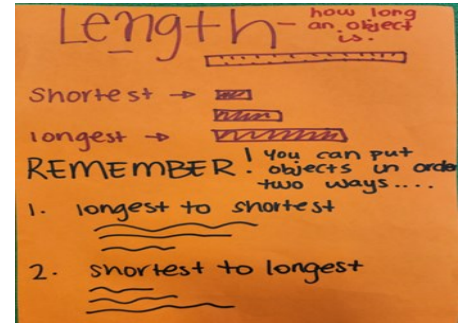 Length - how long
an object
is.
shortest →
longest →
REMEMBER! You can put
objects in order
two ways....
1. longest to shortest
2. shortest to longest